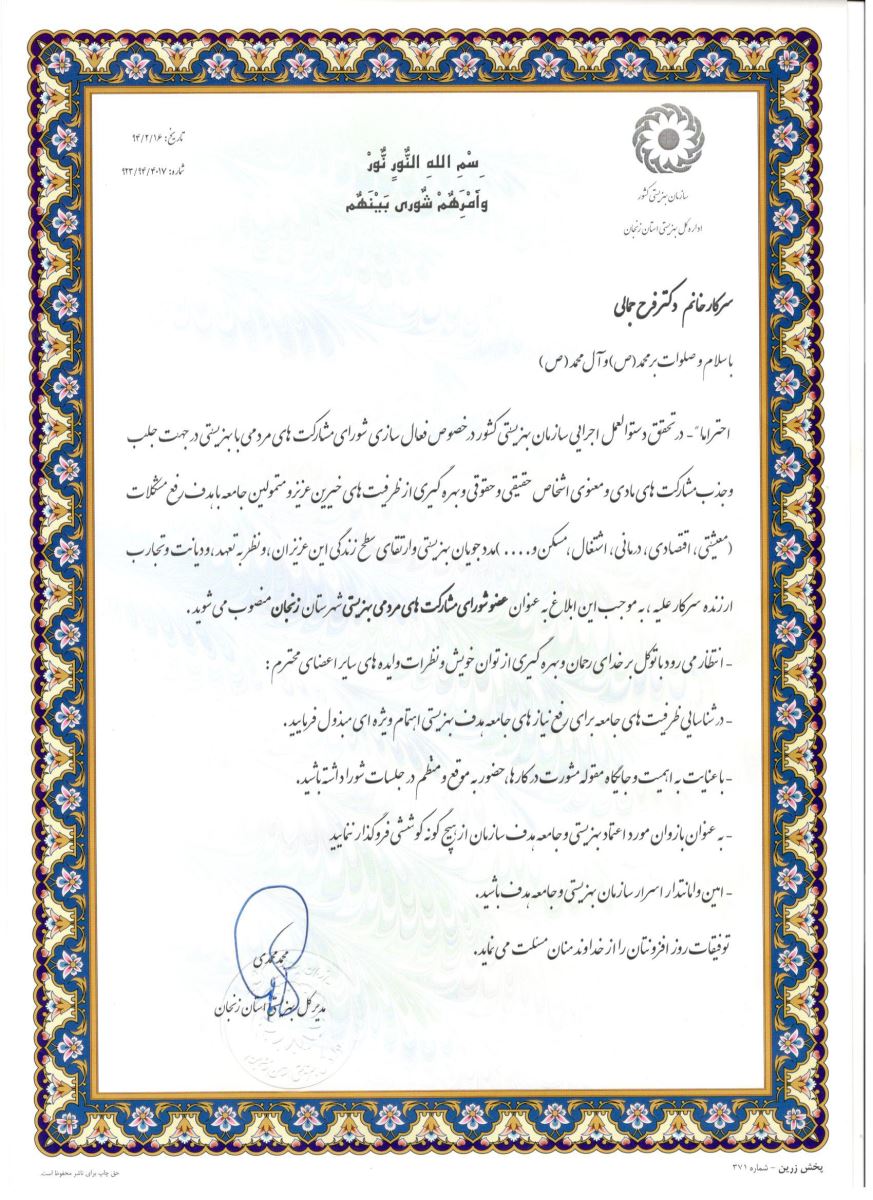 تاریخ: ۹۴/۲/۱۶
شماره: ۹۲۳/۹۴/۴۰۱۷
بِسْمِ اللهِ النُّورِ نُّورْ
وَاَمْرُهُمْ شُوری بَیْنَهُمْ
سازمان بهزیستی کشور
اداره کل بهزیستی استان زنجان
سرکار خانم دکتر فرح جمالی
با سلام و صلوات بر محمد (ص) و آل محمد (ص)
احتراما"- در تحقق دستوالعمل اجرایی سازمان بهزیستی کشور در خصوص فعال سازی شورای مشارکت های مردمی با بهزیستی در جهت جلب
و جذب مشارکت های مادی و معنوی اشخاص حقیقی و حقوقی و بهره گیری از ظرفیت های خیرین عزیز و متمولین جامعه با هدف رفع مشکلات
(معیشتی، اقتصادی، درمانی، اشتغال، مسکن و....) مددجویان بهزیستی و ارتقای سطح زندگی این عزیزان، و نظر به تعهد، و دیانت و تجارب
ارزنده سرکار علیه، به موجب این ابلاغ به عنوان عضو شورای مشارکت های مردمی بهزیستی شهرستان زنجان منصوب می شوید.
- انتظار می رود با توکل بر خدای رحمان و بهره گیری از توان خویش و نظرات و ایده های سایر اعضای محترم:
- در شناسایی ظرفیت های جامعه برای رفع نیاز های جامعه هدف بهزیستی اهتمام ویژه ای مبذول فرمایید.
- با عنایت به اهمیت و جایگاه مقوله مشورت در کارها، حضور به موقع و منظم در جلسات شورا داشته باشید.
- به عنوان بازوان مورد اعتماد بهزیستی و جامعه هدف سازمان از هیچ گونه کوششی فروگذار ننمایید
- امین و امانتدار اسرار سازمان بهزیستی و جامعه هدف باشید.
توفیقات روز افزونتان را از خداوند منان مسئلت می نماید.
محمد محمدی
مدیر کل بهزیستی استان زنجان
پخش زرین - شماره ۳۷۱
حق چاپ برای ناشر محفوظ است.